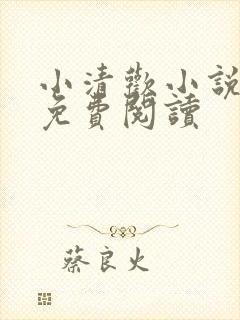 小清歡小說
免費閱讀
蔡良火